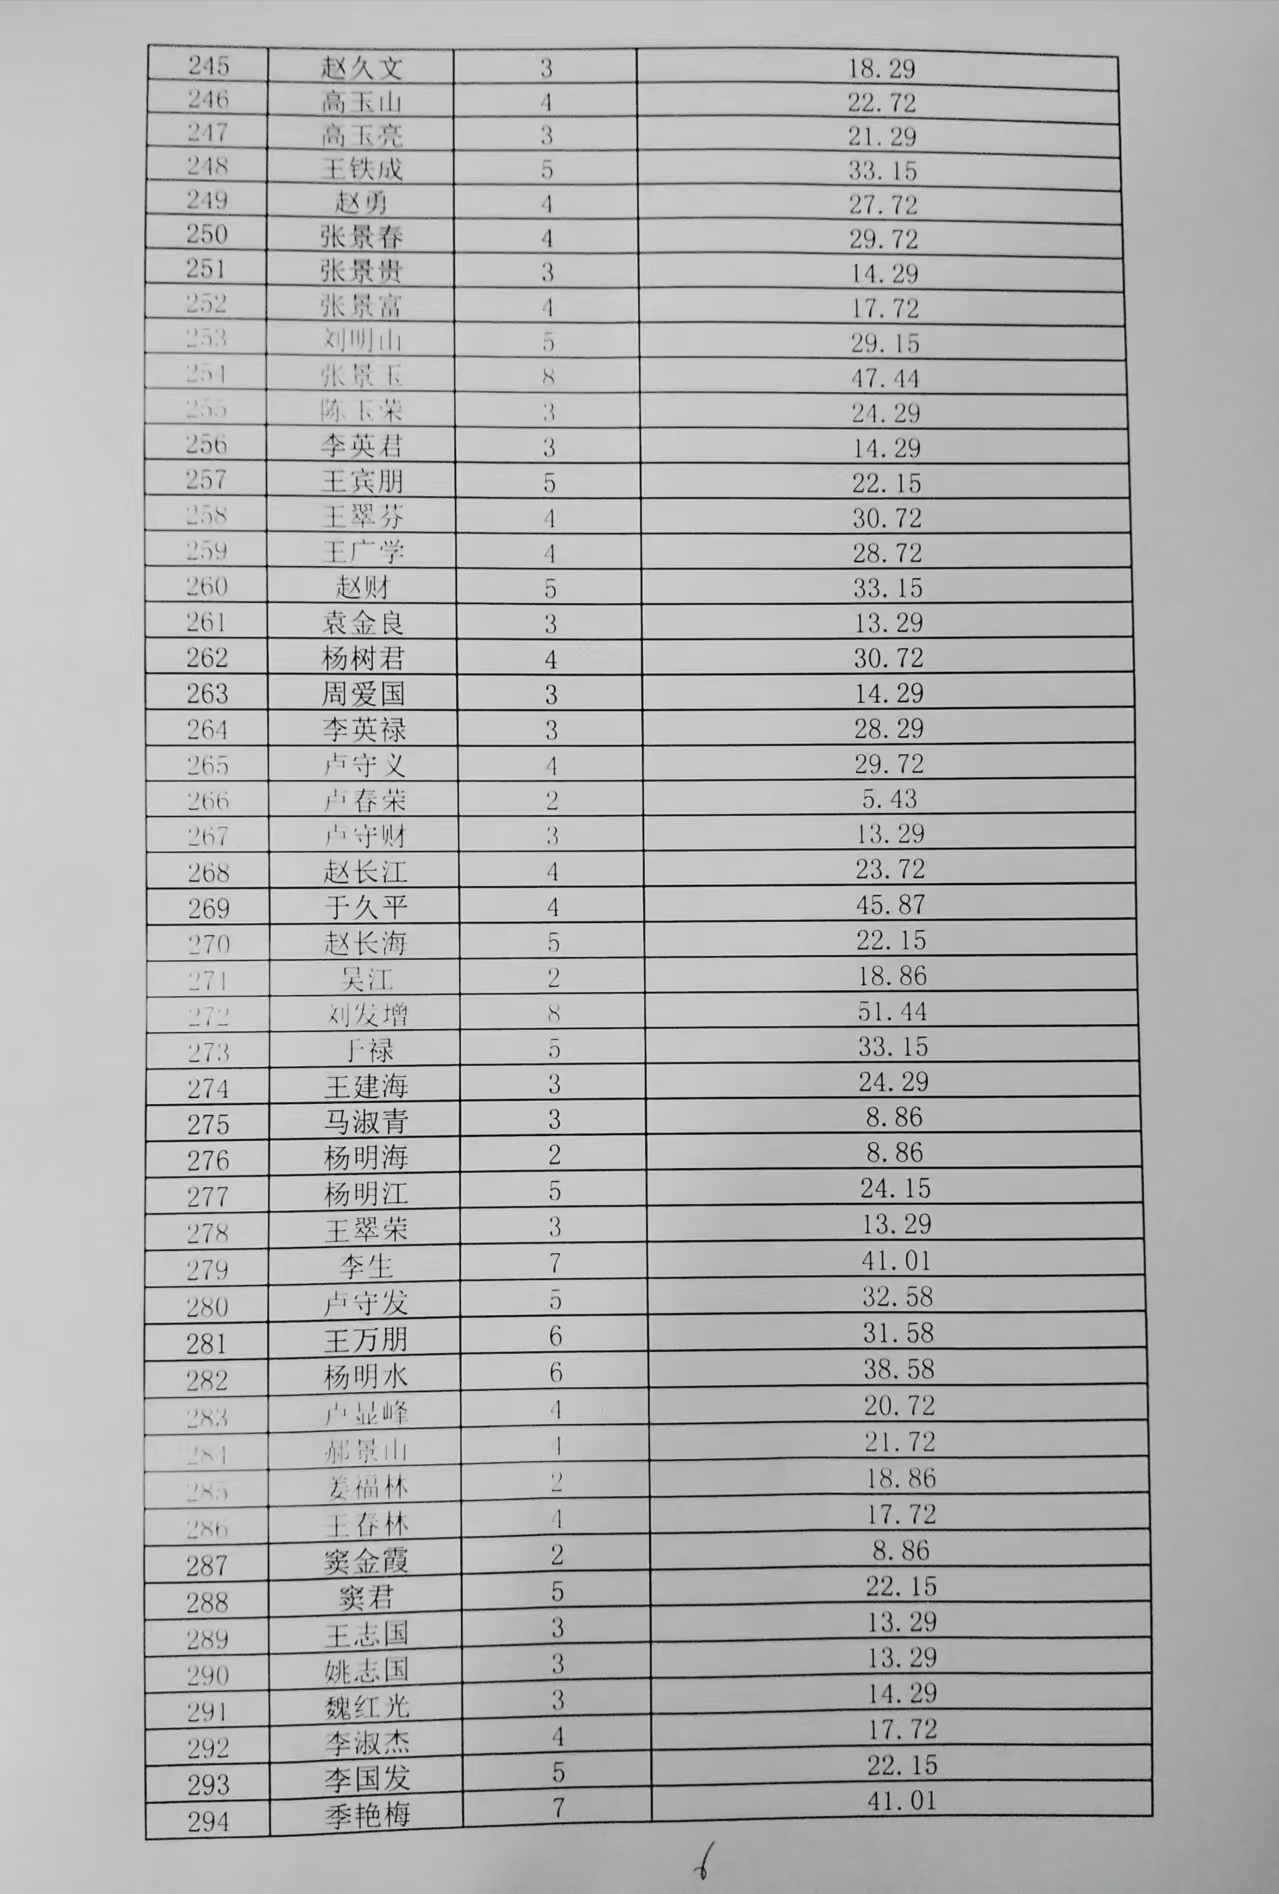 245 赵久文 3 18.29
246 高玉山 4 22.72
247 高玉亮 3 21.29
248 王铁成 5 33.15
249 赵勇 4 27.72
250 张景春 4 29.72
251 张景贵 3 14.29
252 张景富 4 17.72
253 刘明山 5 29.15
254 张景玉 8 47.44
255 陈玉荣 3 24.29
256 李英君 3 14.29
257 王宾朋 5 22.15
258 王翠芬 4 30.72
259 王广学 4 28.72
260 赵财 5 33.15
261 袁金良 3 13.29
262 杨树君 4 30.72
263 周爱国 3 14.29
264 李英禄 3 28.29
265 卢守义 4 29.72
266 卢春荣 2 5.43
267 卢守财 3 13.29
268 赵长江 4 23.72
269 于久平 4 45.87
270 赵长海 5 22.15
271 吴江 2 18.86
272 刘发增 8 51.44
273 于禄 5 33.15
274 王建海 3 24.29
275 马淑青 3 8.86
276 杨明海 2 8.86
277 杨明江 5 24.15
278 王翠荣 3 13.29
279 李生 7 41.01
280 卢守发 5 32.58
281 王万朋 6 31.58
282 杨明水 6 38.58
283 卢显峰 4 20.72
284 郝景山 4 21.72
285 姜福林 2 18.86
286 王春林 4 17.72
287 窦金霞 2 8.86
288 窦君 5 22.15
289 王志国 3 13.29
290 姚志国 3 13.29
291 魏红光 3 14.29
292 李淑杰 4 17.72
293 李国发 5 22.15
294 季艳梅 7 41.01
6